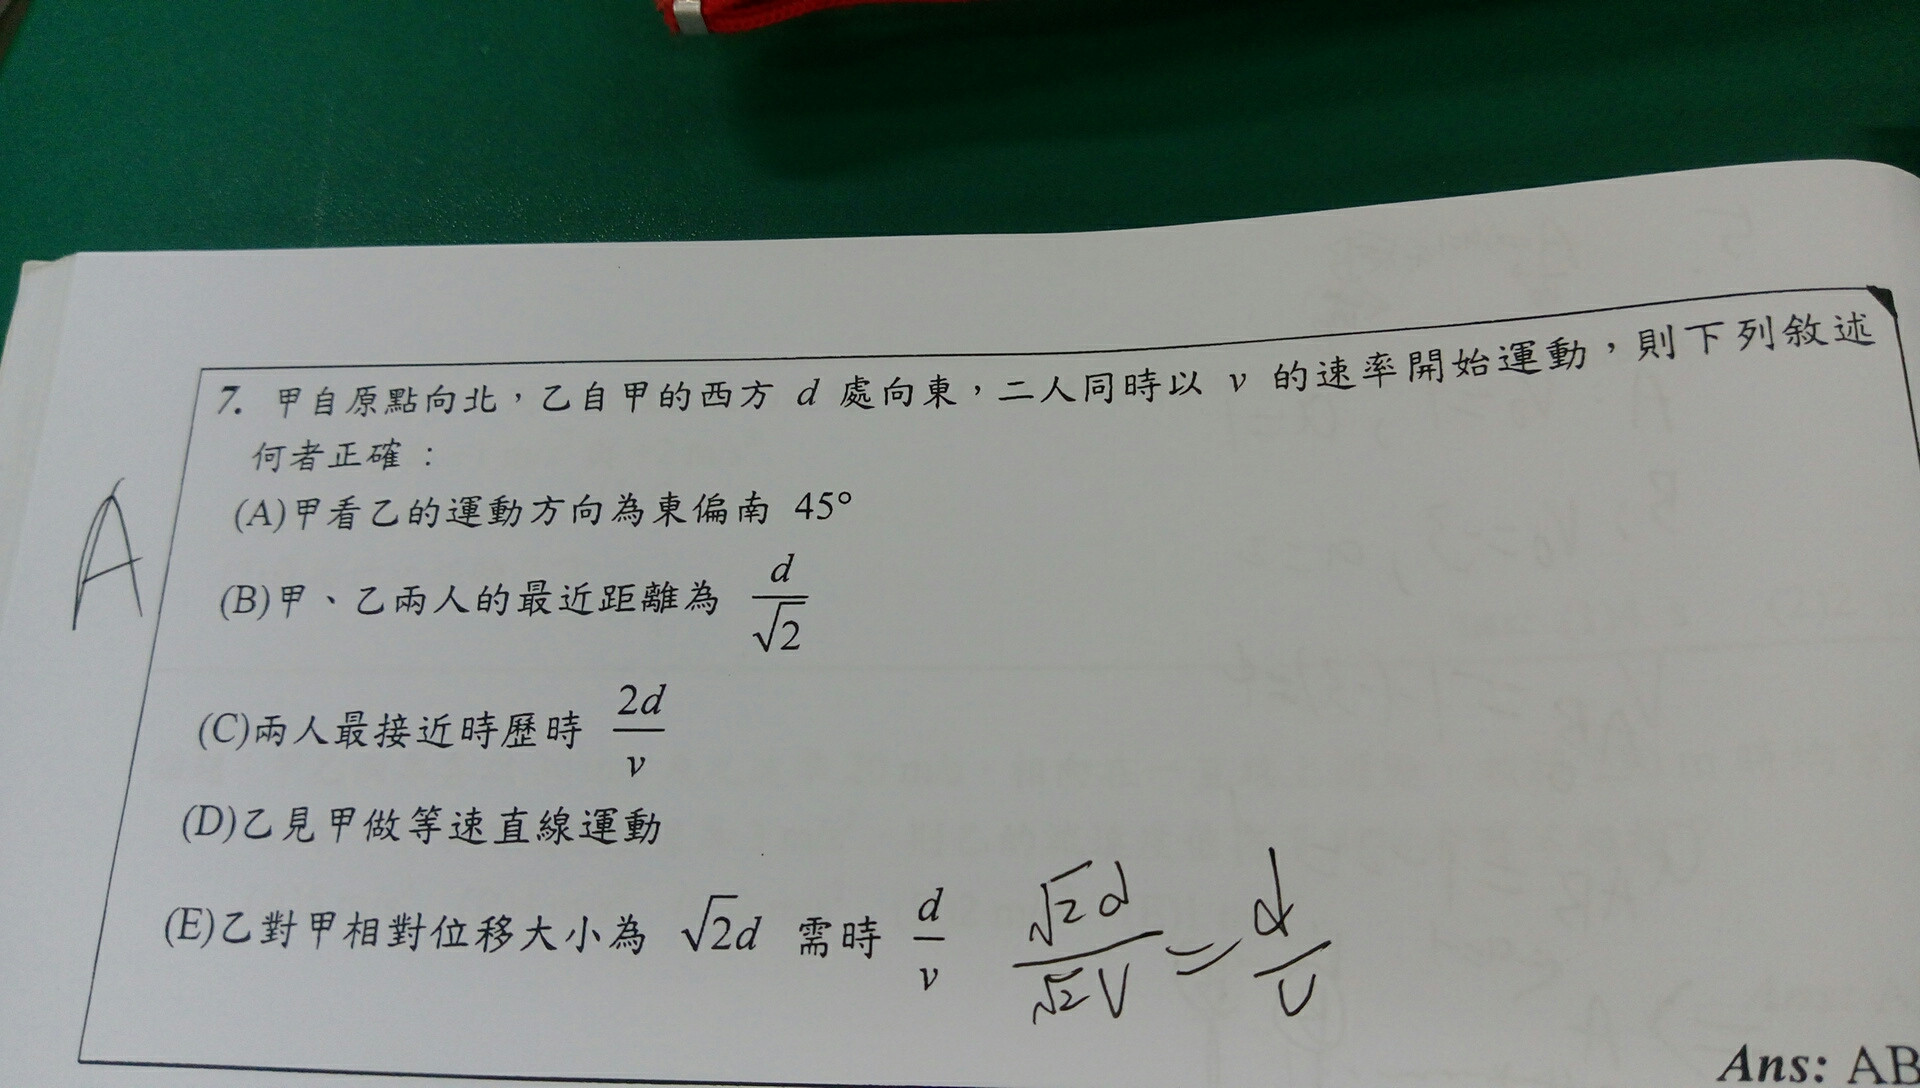 7. 甲自原點向北，乙自甲的西方 d 處向東，二人同時以 v 的速率開始運動，則下列敘述
何者正確：
(A)甲看乙的運動方向為東偏南 45°
(B)甲、乙兩人的最近距離為 d/√2
(C)兩人最接近時歷時 2d/v
(D)乙見甲做等速直線運動
(E)乙對甲相對位移大小為 √2d 需時 d/v
√2d/√2V = d/v
A
Ans: AB